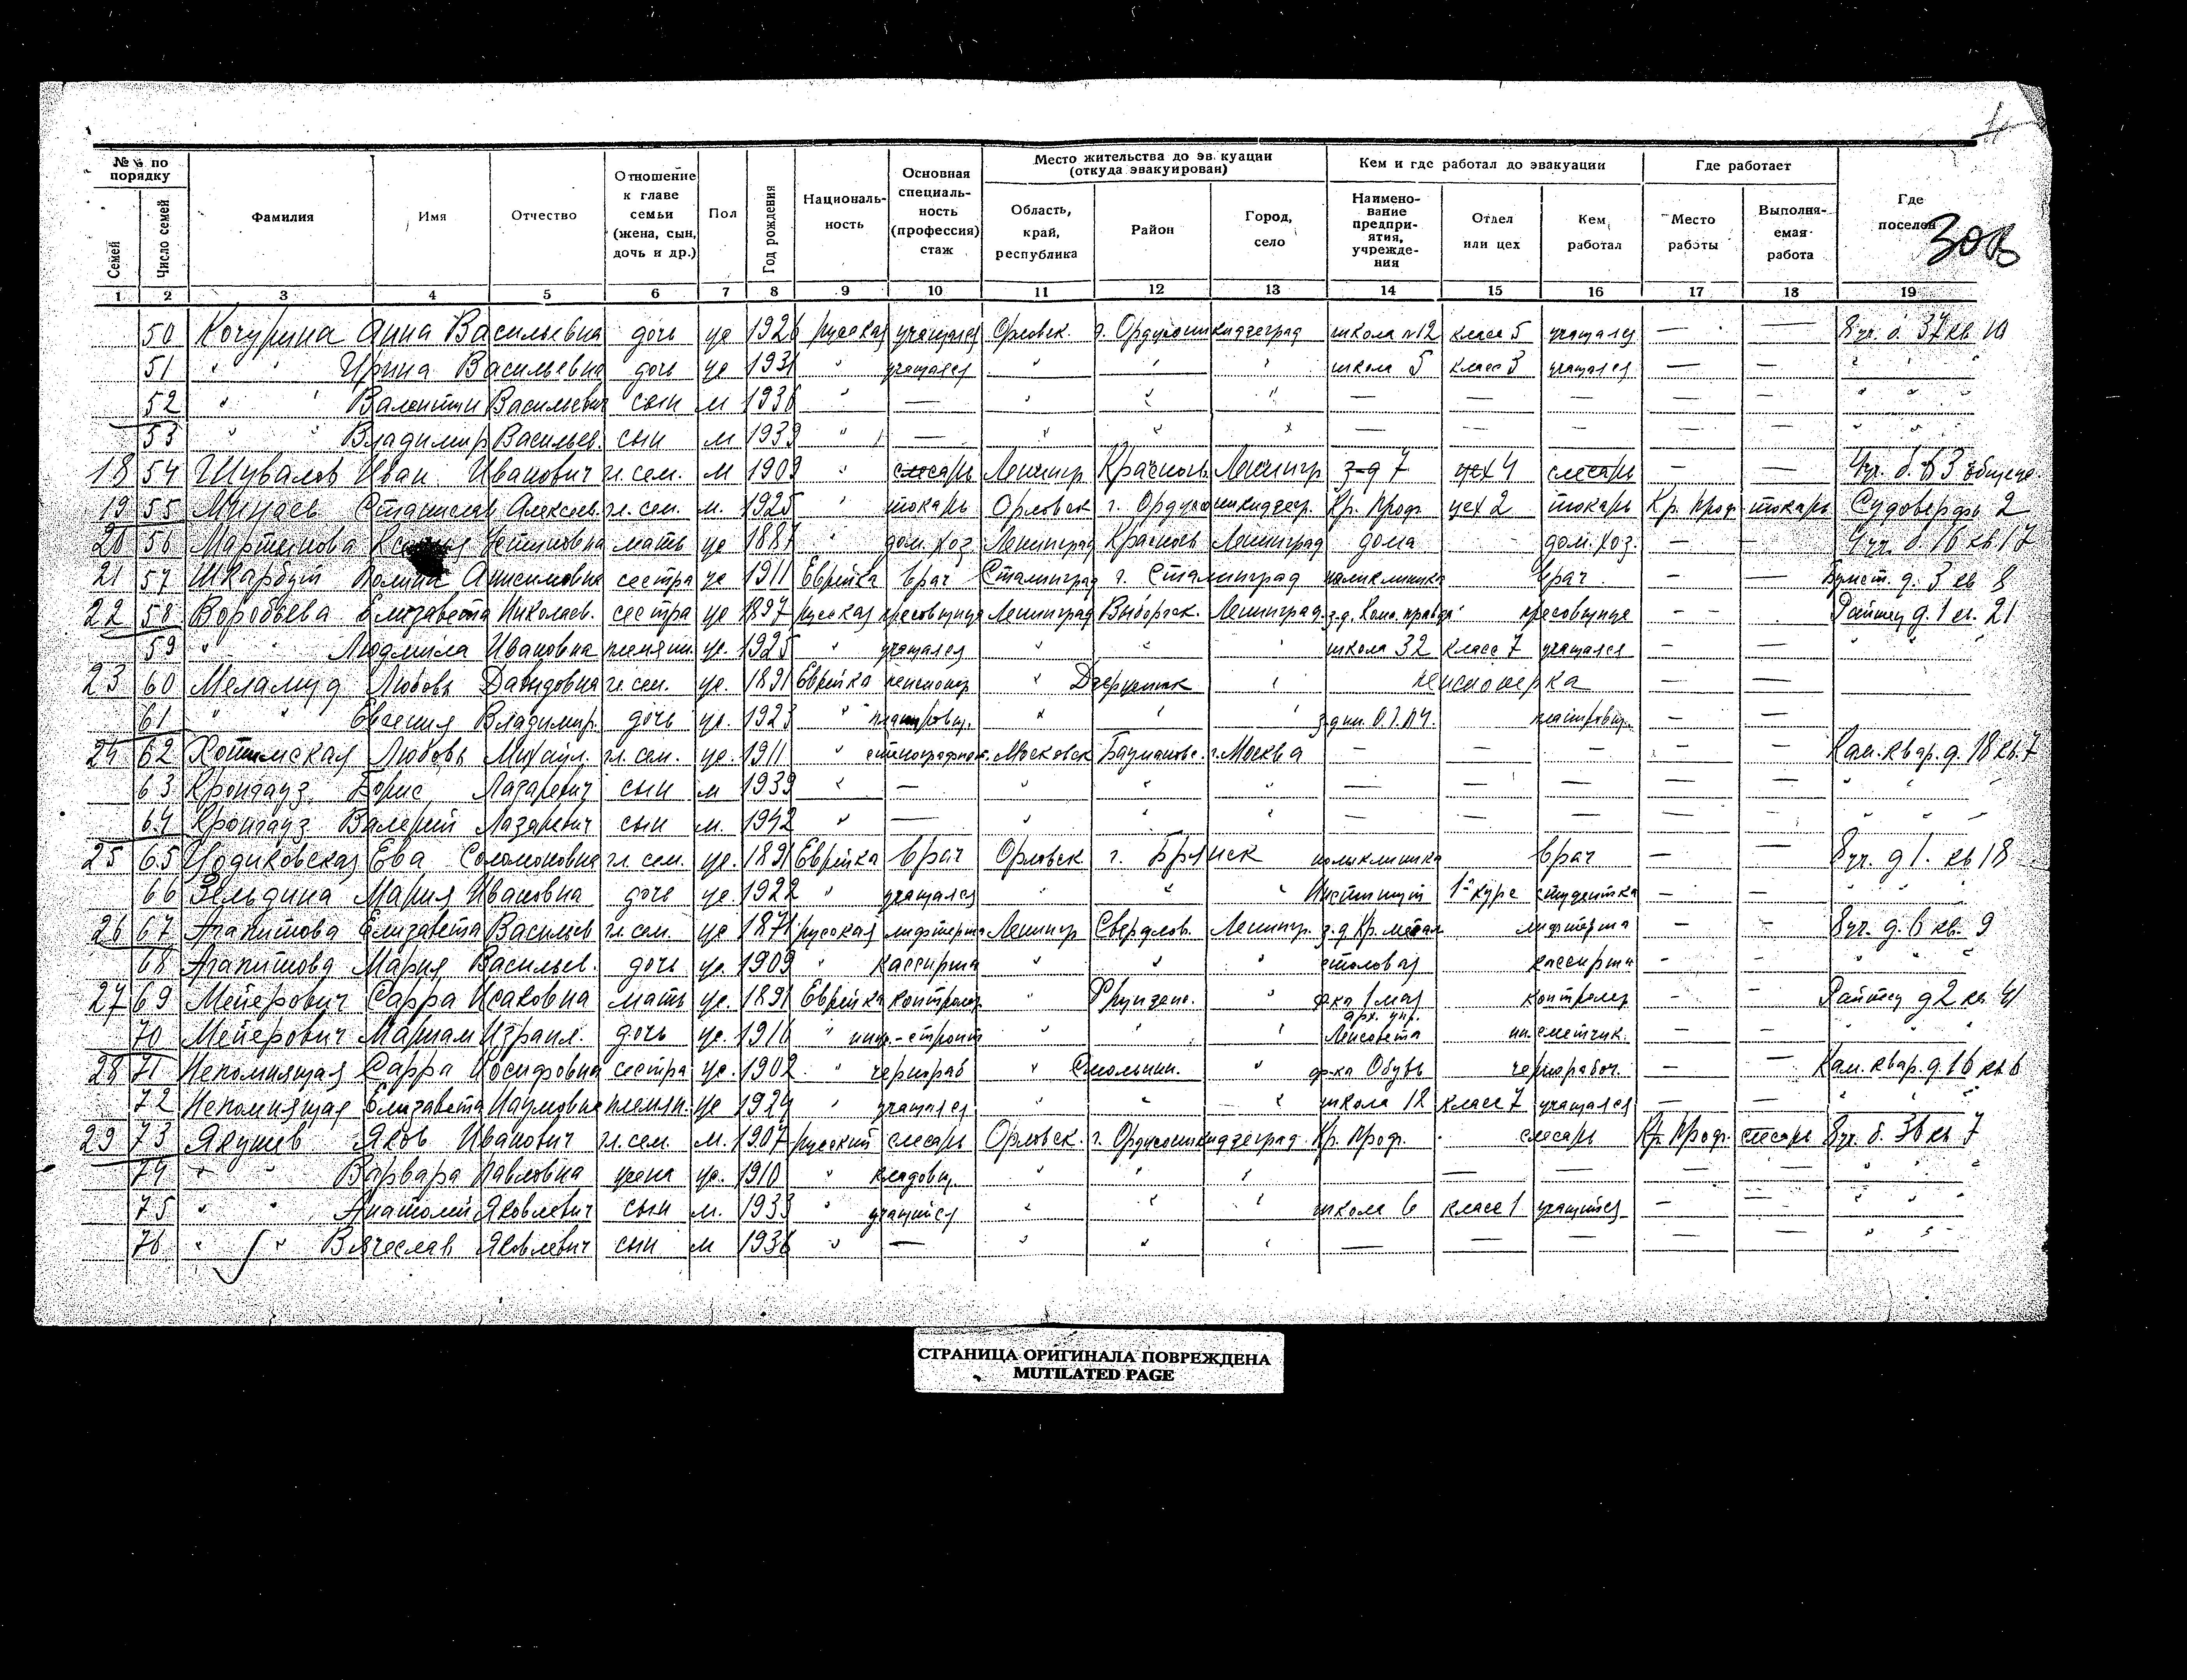 №№ по порядку
Место жительства до эвакуации (откуда эвакуирован)
Кем и где работал до эвакуации
Где работает
Семей
Число семей
Фамилия
Имя
Отчество
Отношение к главе семьи (жена, сын, дочь и др.)
Пол
Год рождения
Националь-ность
Основная специаль-ность (профессия) стаж
Область, край, республика
Район
Город, село
Наимено-вание предпри-ятия, учрежде-ния
Отдел или цех
Кем работал
Место работы
Выполня-емая работа
Где поселен
308
1 2 3 4 5 6 7 8 9 10 11 12 13 14 15 16 17 18 19
50 Кочурина Анна Васильевна дочь ж 1926 русская учащаяся Орловск. г. Орджоникидзеград школа №12 класс 5 учащаяся — — 8 уч. б. 37 кв 10
51 " " Ирина Васильевна дочь ж 1931 " учащаяся " " " школа 5 класс 3 учащаяся — — " "
52 " " Валентин Васильевич сын м 1936 " — " " " — — — — — " " "
53 " " Владимир Васильев. сын м 1939 " — " " " — — — — —
18 54 Шувалов Иван Иванович гл. сем. м 1909 " слесарь Ленингр Красногв. Ленингр з-д 7 цех 4 слесарь — —
19 55 Минаев Станислав Алексеев. гл. сем. м. 1925 " токарь Орловск г. Орджоникидзегр. Кр. Проф. цех 2 токарь Кр. Проф. токарь Судоверфь 2
20 56 Мартынова Ксения Устиновна мать ж 1887 " дом. хоз Ленинград Красногв Ленинград дома дом. хоз. — — 4 уч. б. 16 кв 17
21 57 Шкарбут Полина Анисимовна сестра ж 1911 Еврейка врач Сталинград г. Сталинград поликлиника врач — — д. 3 кв 8
22 58 Воробьева Елизавета Николаев. сестра ж 1897 русская прессовщица Ленинград Выборск. Ленинград. з-д. прессовщица — — д. 1 кв. 21
59 " " Людмила Ивановна племян. ж. 1925 " учащаяся " " школа 32 класс 7 учащаяся — — " "
23 60 Меламуд Любовь Давыдовна гл. сем. ж. 1891 Еврейка пенсионер " Дзержинск " пенсионерка — —
61 " " Евгения Владимир. дочь ж. 1923 " " " " — —
24 62 Хотимская Любовь Михайл. гл. сем. ж. 1911 " стенографист. Московск Баумановс. г. Москва — — — — — Кам. квар. д. 18 кв. 7
63 Кронгауз Борис Лазаревич сын м 1939 " — " " " — — — — — " " "
64 Кронгауз Валерий Лазаревич сын м. 1942 " — " " " — — — — — " " "
25 65 Ева Соломоновна гл. сем. ж. 1891 Еврейка врач Орловск г. Брянск поликлиника врач — — 8 уч. д 1. кв 18
66 Зельдина Мария Ивановна дочь ж. 1922 " учащаяся " " " Институт 1й курс студентка — — " " "
26 67 Агапитова Елизавета Васильев гл. сем. ж 1871 русская лифтерша Ленингр Свердлов. Ленингр. з-д Кр. метал лифтерша — — 8 уч. д. 6 кв. 9
68 Агапитова Мария Васильев. дочь ж. 1909 " кассирша " " " столовая кассирша — — " " "
27 69 Мейерович Сарра Исаковна мать ж. 1891 Еврейка контролер " Фрунзенс. " ф-ка 1 мая контролер — — д 2 кв 41
70 Мейерович Мариам Израил. дочь ж. 1916 " инж.-строит " " " Арх. упр. Ленсовета ин. сметчик. — — " " "
28 71 Непомнящая Сарра Иосифовна сестра ж. 1902 " чернораб " Смольнин. " ф-ка Обувь чернорабоч. — — Кам. квар. д. 16 кв 6
72 Непомнящая Елизавета Наумовна племян. ж 1924 " учащаяся " " " школа 12 класс 7 учащаяся — — " "
29 73 Якушев Яков Иванович гл. сем м. 1907 русский слесарь Орловск. г. Орджоникидзеград Кр. Проф. слесарь Кр. Проф. слесарь 8 уч. б. 36 кв 7
74 " " Варвара Павловна жена ж. 1910 " кладовщ. " " " — — — — " " "
75 " " Анатолий Яковлевич сын м. 1933 " учащийся " " " школа 6 класс 1 учащийся — — " " "
76 " " Вячеслав Яковлевич сын м 1936 " — " " " — — — — — " "
СТРАНИЦА ОРИГИНАЛА ПОВРЕЖДЕНА
MUTILATED PAGE